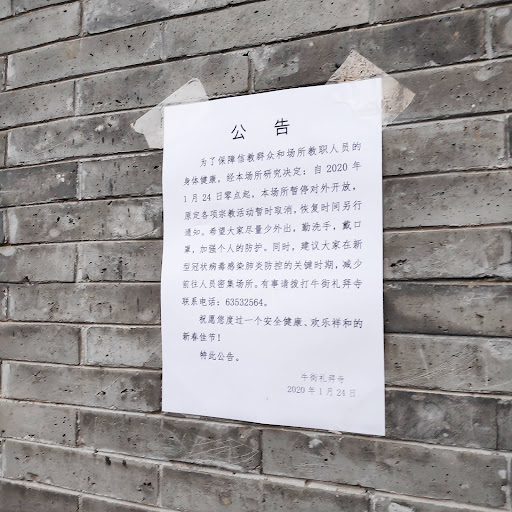 公 告
为了保障信教群众和场所教职人员的
身体健康，经本场所研究决定：自 2020 年
1 月 24 日零点起，本场所暂停对外开放，
原定各项宗教活动暂时取消，恢复时间另行
通知。希望大家尽量少外出，勤洗手，戴口
罩，加强个人的防护。同时，建议大家在新
型冠状病毒感染肺炎防控的关键时期，减少
前往人员密集场所。有事请拨打牛街礼拜寺
联系电话：63532564。
祝愿您度过一个安全健康、欢乐祥和的
新春佳节！
特此公告。
牛街礼拜寺
2020 年 1 月 24 日